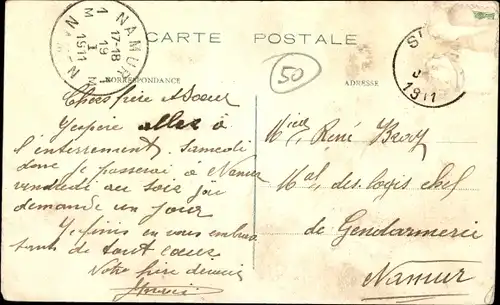 NAMUR 1
17-18
19
I
1911
NAMEN 1
CARTE POSTALE
CORRESPONDANCE
ADRESSE
50
1911
Chers frère & Soeur
J'espère aller à
l'enterrement Samedi
donc je passerai à Namur
vendredi au soir j'ai
demandé un jour
Je finis en vous embras
sant de tout cœur
Votre frère
René
Mal des logis chef
de Gendarmerie
Namur